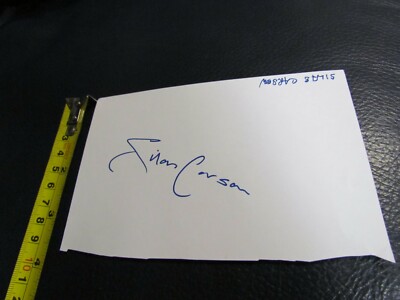 SILAS CARSON
Silas Carson
3 4 5 6 7 8 9 10
3 4